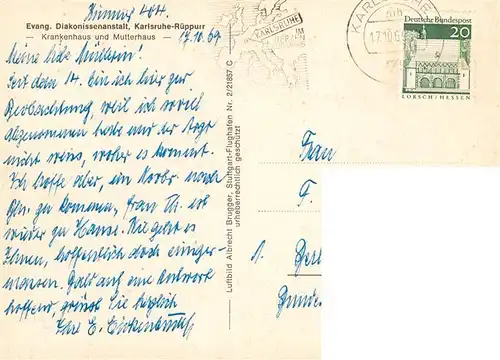 Zimmer 404.
Evang. Diakonissenanstalt, Karlsruhe-Rüppurr
— Krankenhaus und Mutterhaus —
17.10.69
Meine liebe Müllerin!
Seit dem 14. bin ich hier zur
Beobachtung, weil ich so viel
abgenommen habe und der Arzt
nicht weiss, woher es kommt.
Ich hoffe aber, am
zu kommen, Frau Th. ist
wieder zu Hause. Wie geht es
Ihnen, hoffentlich doch einiger-
massen. Bald auf eine Antwort
hoffend, grüsst Sie herzlich
Ihre E.
Luftbild Albrecht Brugger, Stuttgart-Flughafen Nr. 2/21857 C
urheberrechtlich geschützt
KARLSRUHE
IM
KARLSRUHE
17.10.69
Deutsche Bundespost
20
LORSCH/HESSEN
Frau
F.
1